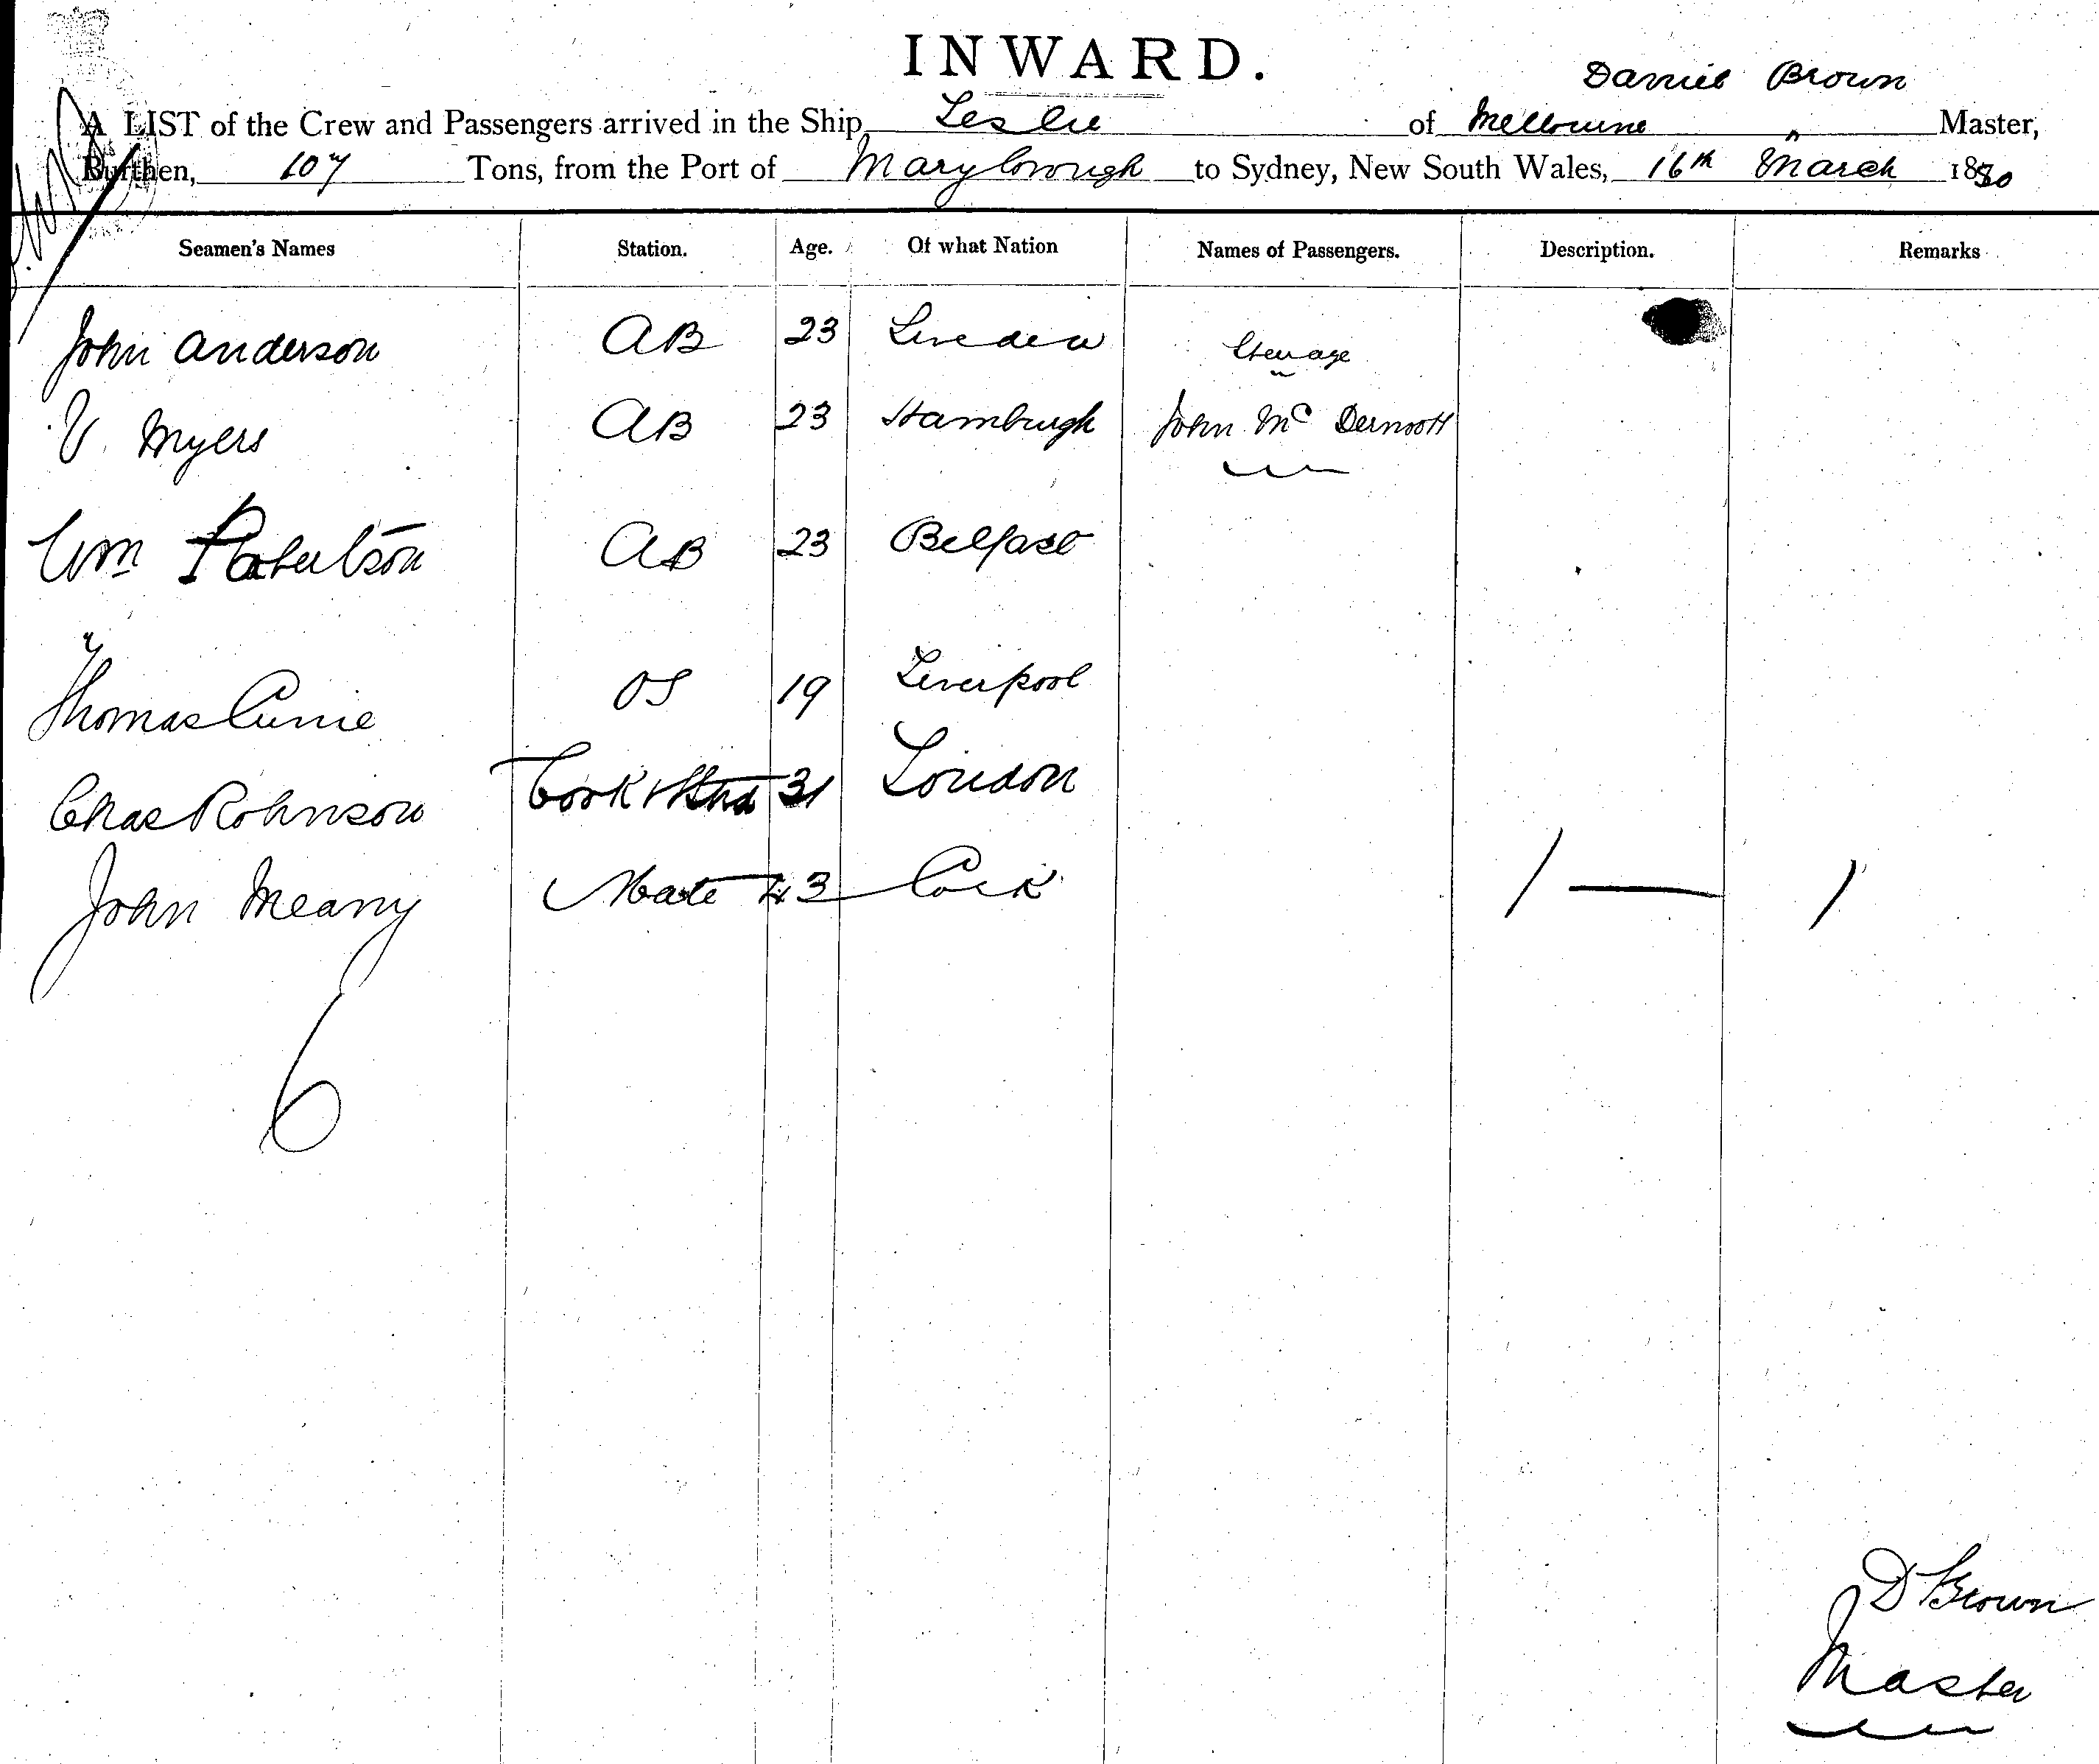 INWARD.
Daniel Brown
A LIST of the Crew and Passengers arrived in the Ship, Leslie of Melbourne " Master,
Burthen, 107 Tons, from the Port of Maryborough to Sydney, New South Wales, 16th March 1880
Seamen's Names Station. Age. Of what Nation Names of Passengers. Description. Remarks
John Anderson AB 23 Sweden Steerage
V. Myers AB 23 Hamburgh John McDermott
Wm Robertson AB 23 Belfast
Thomas Currie OS 19 Liverpool
Chas Robinson Cook & 31 London
John Meany Mate 43 Cork
1 — 1
6
D Brown
Master